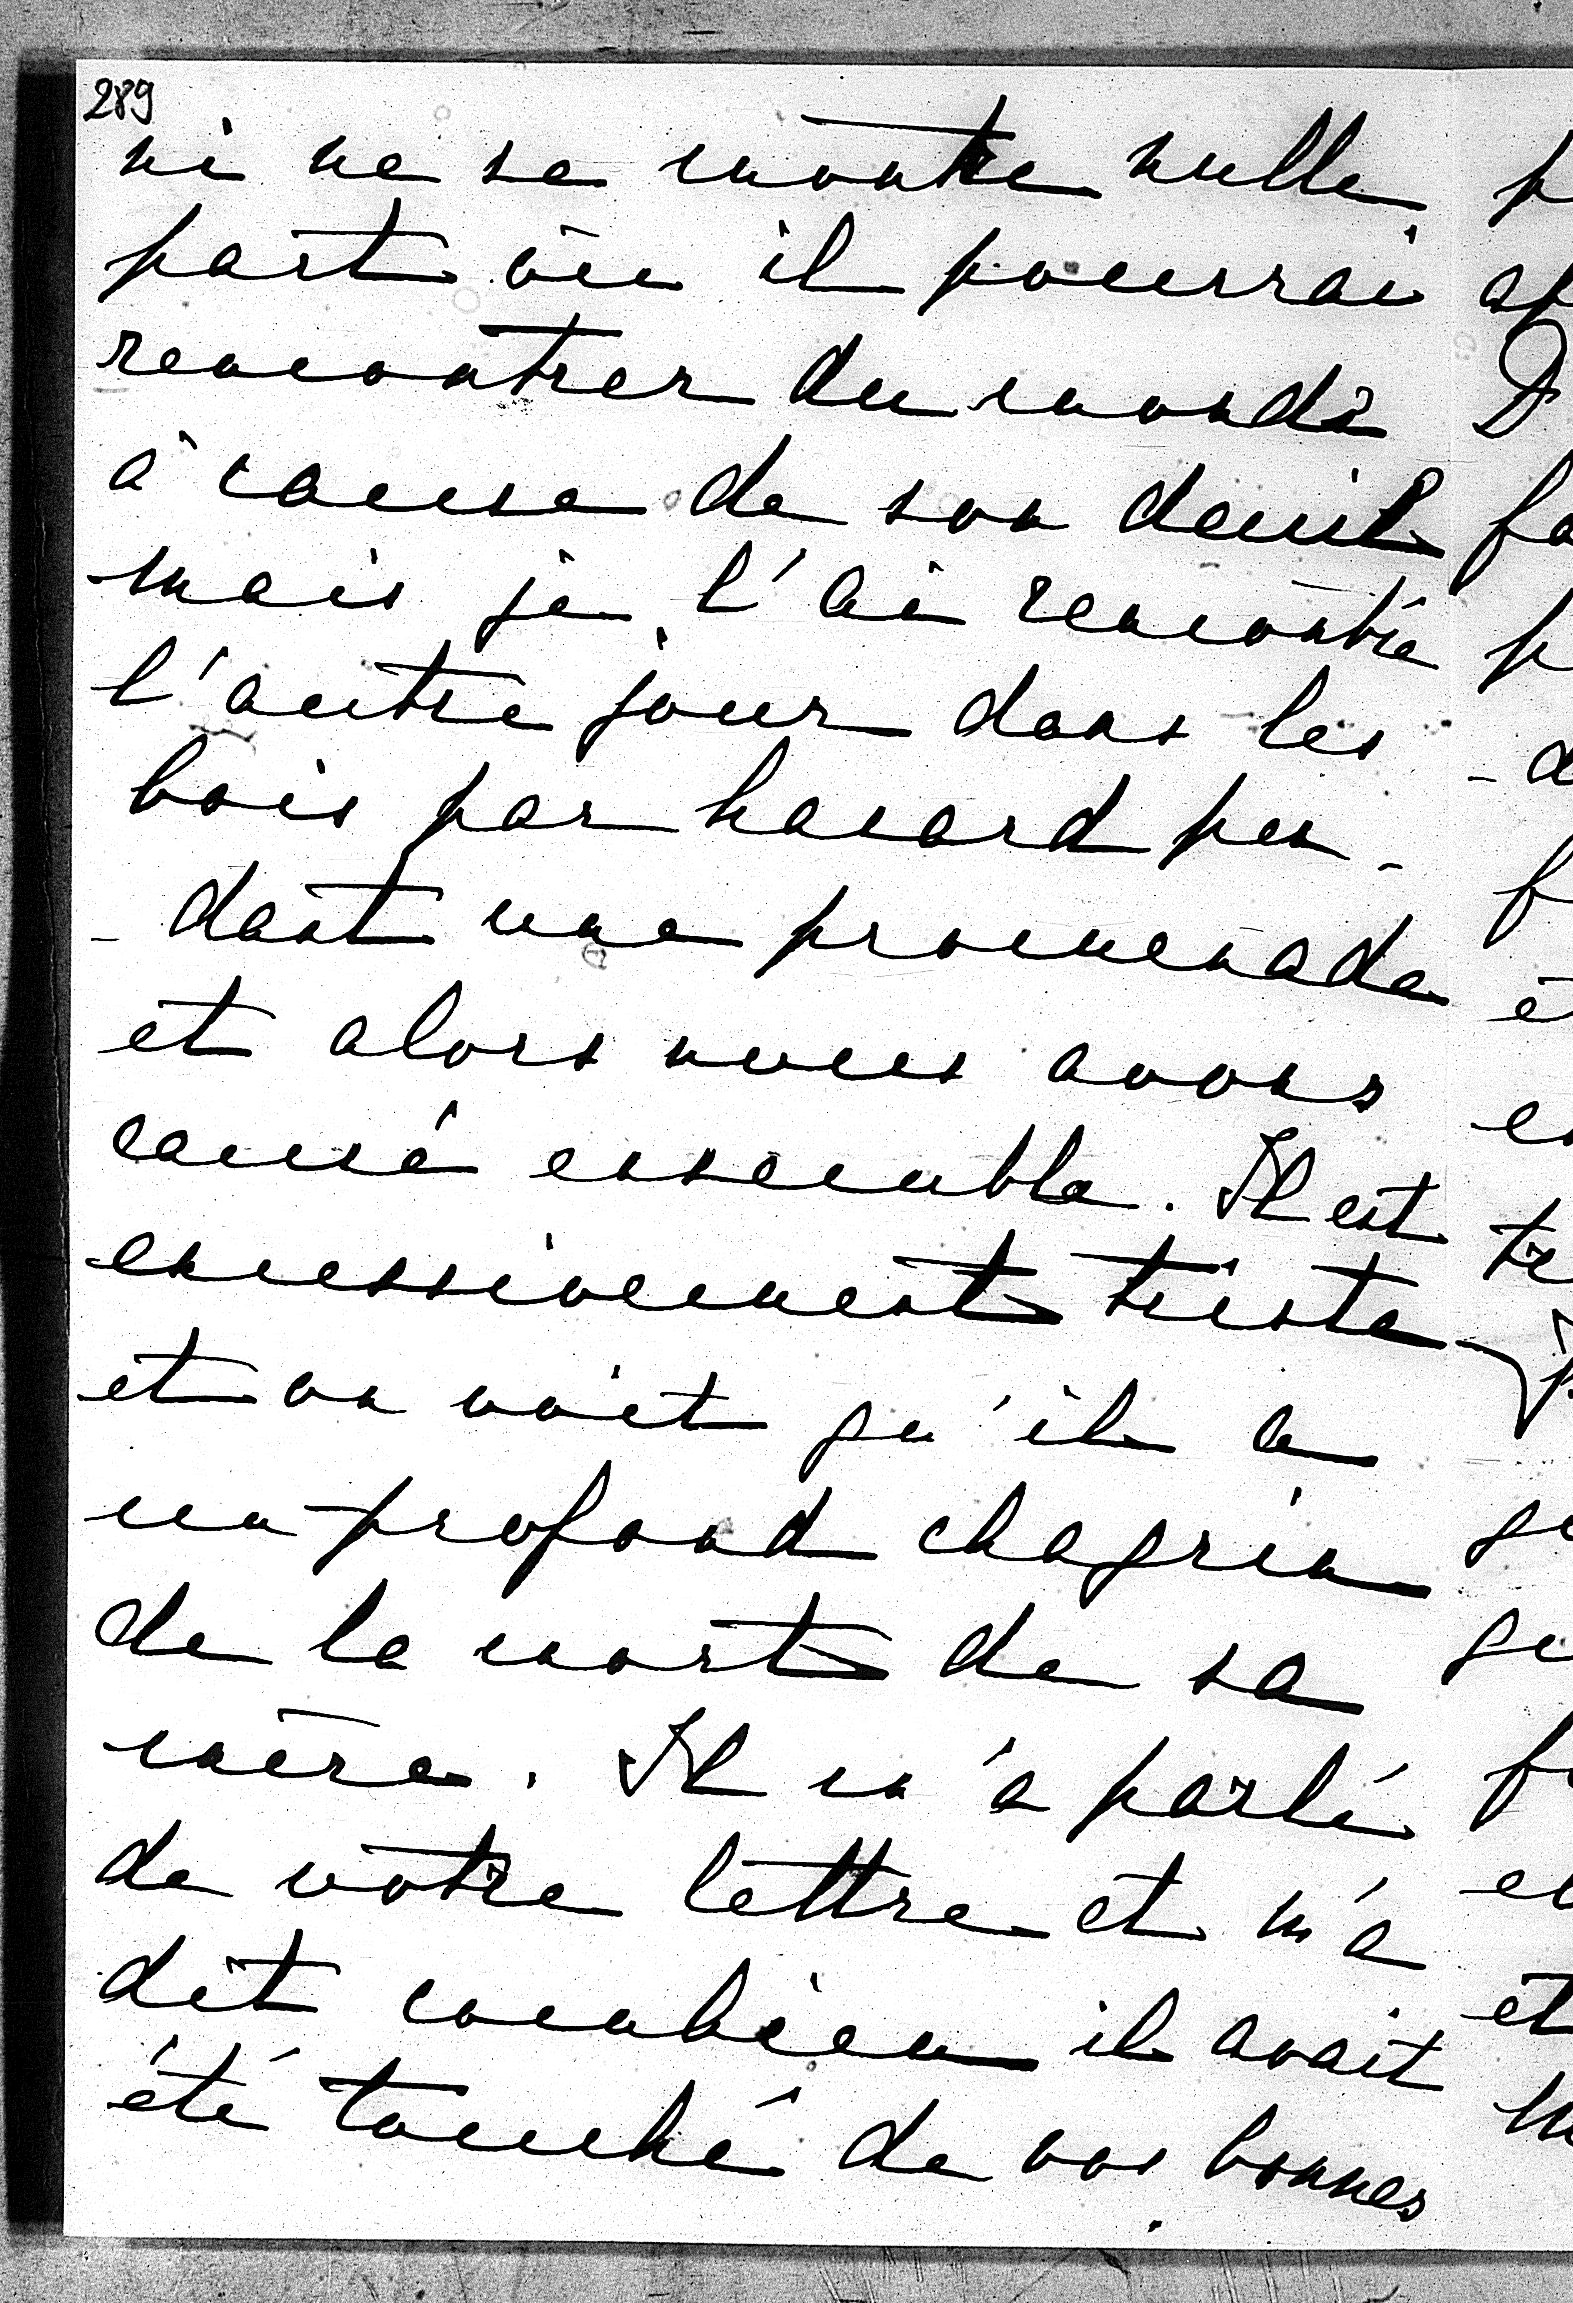 289
ni ne se montre nulle
part où il pourrai
rencontrer du monde
à cause de son deuil
mais je l'ai rencontré
l'autre jour dans les
bois par hasard pen-
-dant une promenade
et alors nous avons
causé ensemble. Il est
excessivement triste
et on voit qu'il a
un profond chagrin
de la mort de sa
mère. Il m'a parlé
de votre lettre et m'a
dit combien il avait
été touché de vos bonnes